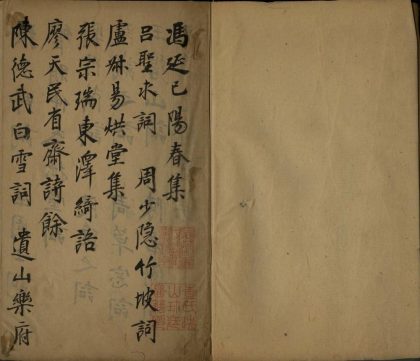 馮延巳陽春集
呂聖求詞 周少隐竹坡詞
盧㷀昜烘堂集
張宗瑞東澤綺語
廖天民省齋詩餘
陳德武白雪詞 遺山樂府